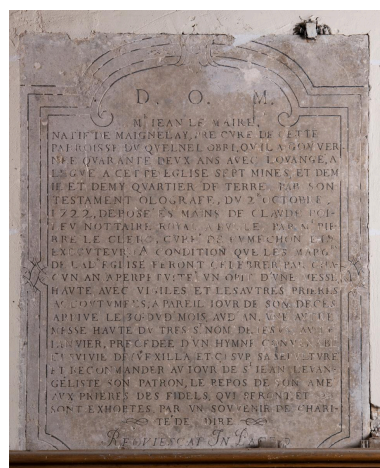 D. O. M.
Mᵉ IEAN LE MAIRE,
NATIF DE MAIGNELAY, PRE CVRE DE CETTE
PARROISSE DV QVELNEL OBRI, QVIL A GOVVER
NEE QVARANTE DEVX ANS AVEC LOVANGE, A
LEGVE A CETTE EGLISE SEPT MINES ET DEM
IE ET DEMY QVARTIER DE TERRE PAR SON
TESTAMENT OLOGRAFE, DV 2 OCTOBRE
1722, DEPOSE EN MAINS DE CLAVDE
NOTTAIRE ROYAL
LE CLERC, CVRE DE
EXECVTEVR, A CONDITION QVE LES MARG
DE LAD EGLISE FERONT CELEBRER PAR CHA
CVN AN A PERPETVITE VN OBIT D'VNE MESSE
HAVTE AVEC VIGILES ET LES AVTRES PRIERES
ACCOVTVMEES, A PAREIL IOVR DE SON DECES
ARRIVE LE DVD MOIS, AVD AN, VNE AVTRE
MESSE HAVTE DV TRES St NOM DE IESVS
IANVIER, PRECEDEE D'VN HYMNE
SVIVIE DV VEXILLA ET CI SVR SA SEPVLTVRE
ET RECOMMANDER AV IOVR DE St IEAN LEVAN
GELISTE SON PATRON, LE REPOS DE SON AME
AVX PRIERES DES FIDELS, QVI SERONT, ET
SONT EXHORTES, PAR VN SOVVENIR DE CHARI
TE DE DIRE
REQVIESCAT IN PACE